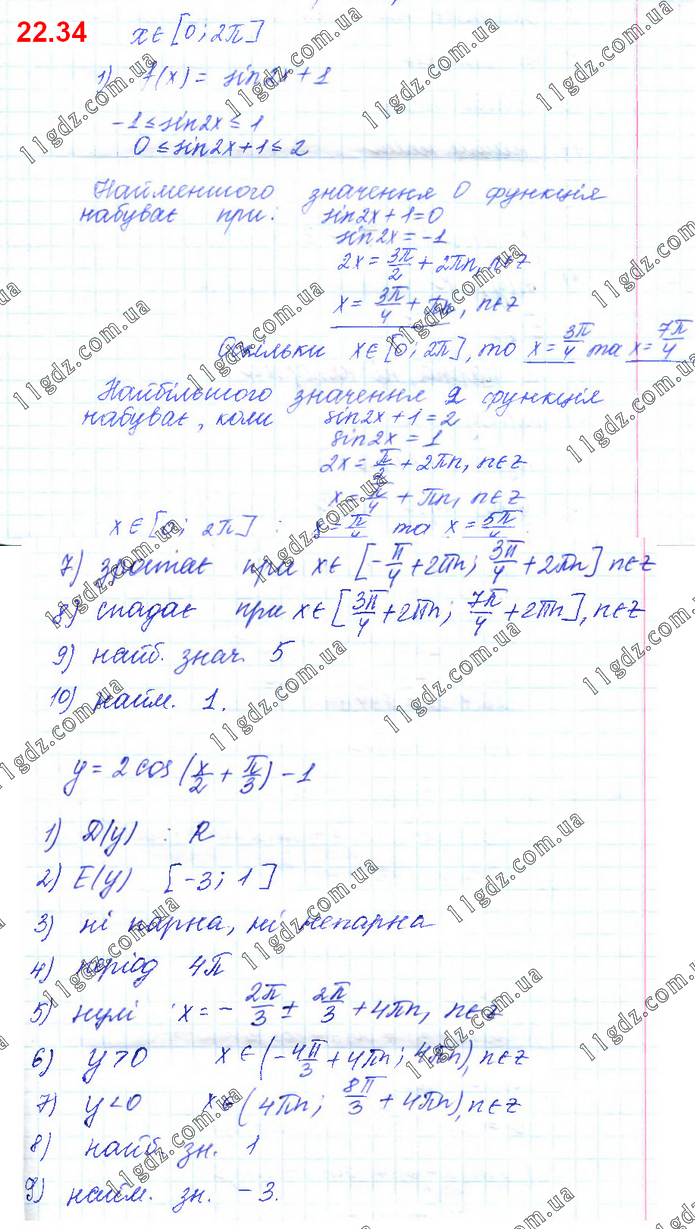 22.34
x ∈ [0; 2π]
1) f(x) = sin2x + 1
-1 ≤ sin2x ≤ 1
0 ≤ sin2x + 1 ≤ 2
Найменшого значення 0 функція
набуває при: sin2x + 1 = 0
sin2x = -1
2x = 3π/2 + 2πn, n∈Z
x = 3π/4 + πn, n∈Z
Оскільки x∈[0; 2π], то x = 3π/4 та x = 7π/4
Найбільшого значення 2 функція
набуває, коли sin2x + 1 = 2
sin2x = 1
2x = π/2 + 2πn, n∈Z
x = π/4 + πn, n∈Z
x∈[0; 2π] : x = π/4 та x = 5π/4
7) зростає при x∈ [-π/4 + 2πn; 3π/4 + 2πn] n∈Z
8) спадає при x∈ [3π/4 + 2πn; 7π/4 + 2πn], n∈Z
9) найб. знач. 5
10) найм. 1.
y = 2cos(x/2 + π/3) - 1
1) D(y) : R
2) E(y) [-3; 1]
3) ні парна, ні непарна
4) період 4π
5) нулі x = -2π/3 ± 2π/3 + 4πn, n∈Z
6) y > 0 x∈(-4π/3 + 4πn; 4πn), n∈Z
7) y < 0 x∈(4πn; 8π/3 + 4πn), n∈Z
8) найб. зн. 1
9) найм. зн. -3.
11gdz.com.ua